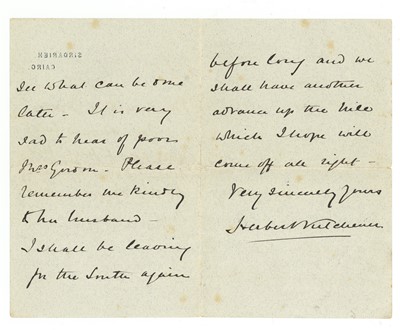 SIRDARIEH
CAIRO
see what can be done
later - It is very
sad to hear of poor
Mrs Gordon - Please
remember me kindly
to her husband -
I shall be leaving
for the South again
before long and we
shall have another
advance up the Nile
which I hope will
come off all right -
Very sincerely yours
Herbert Kitchener